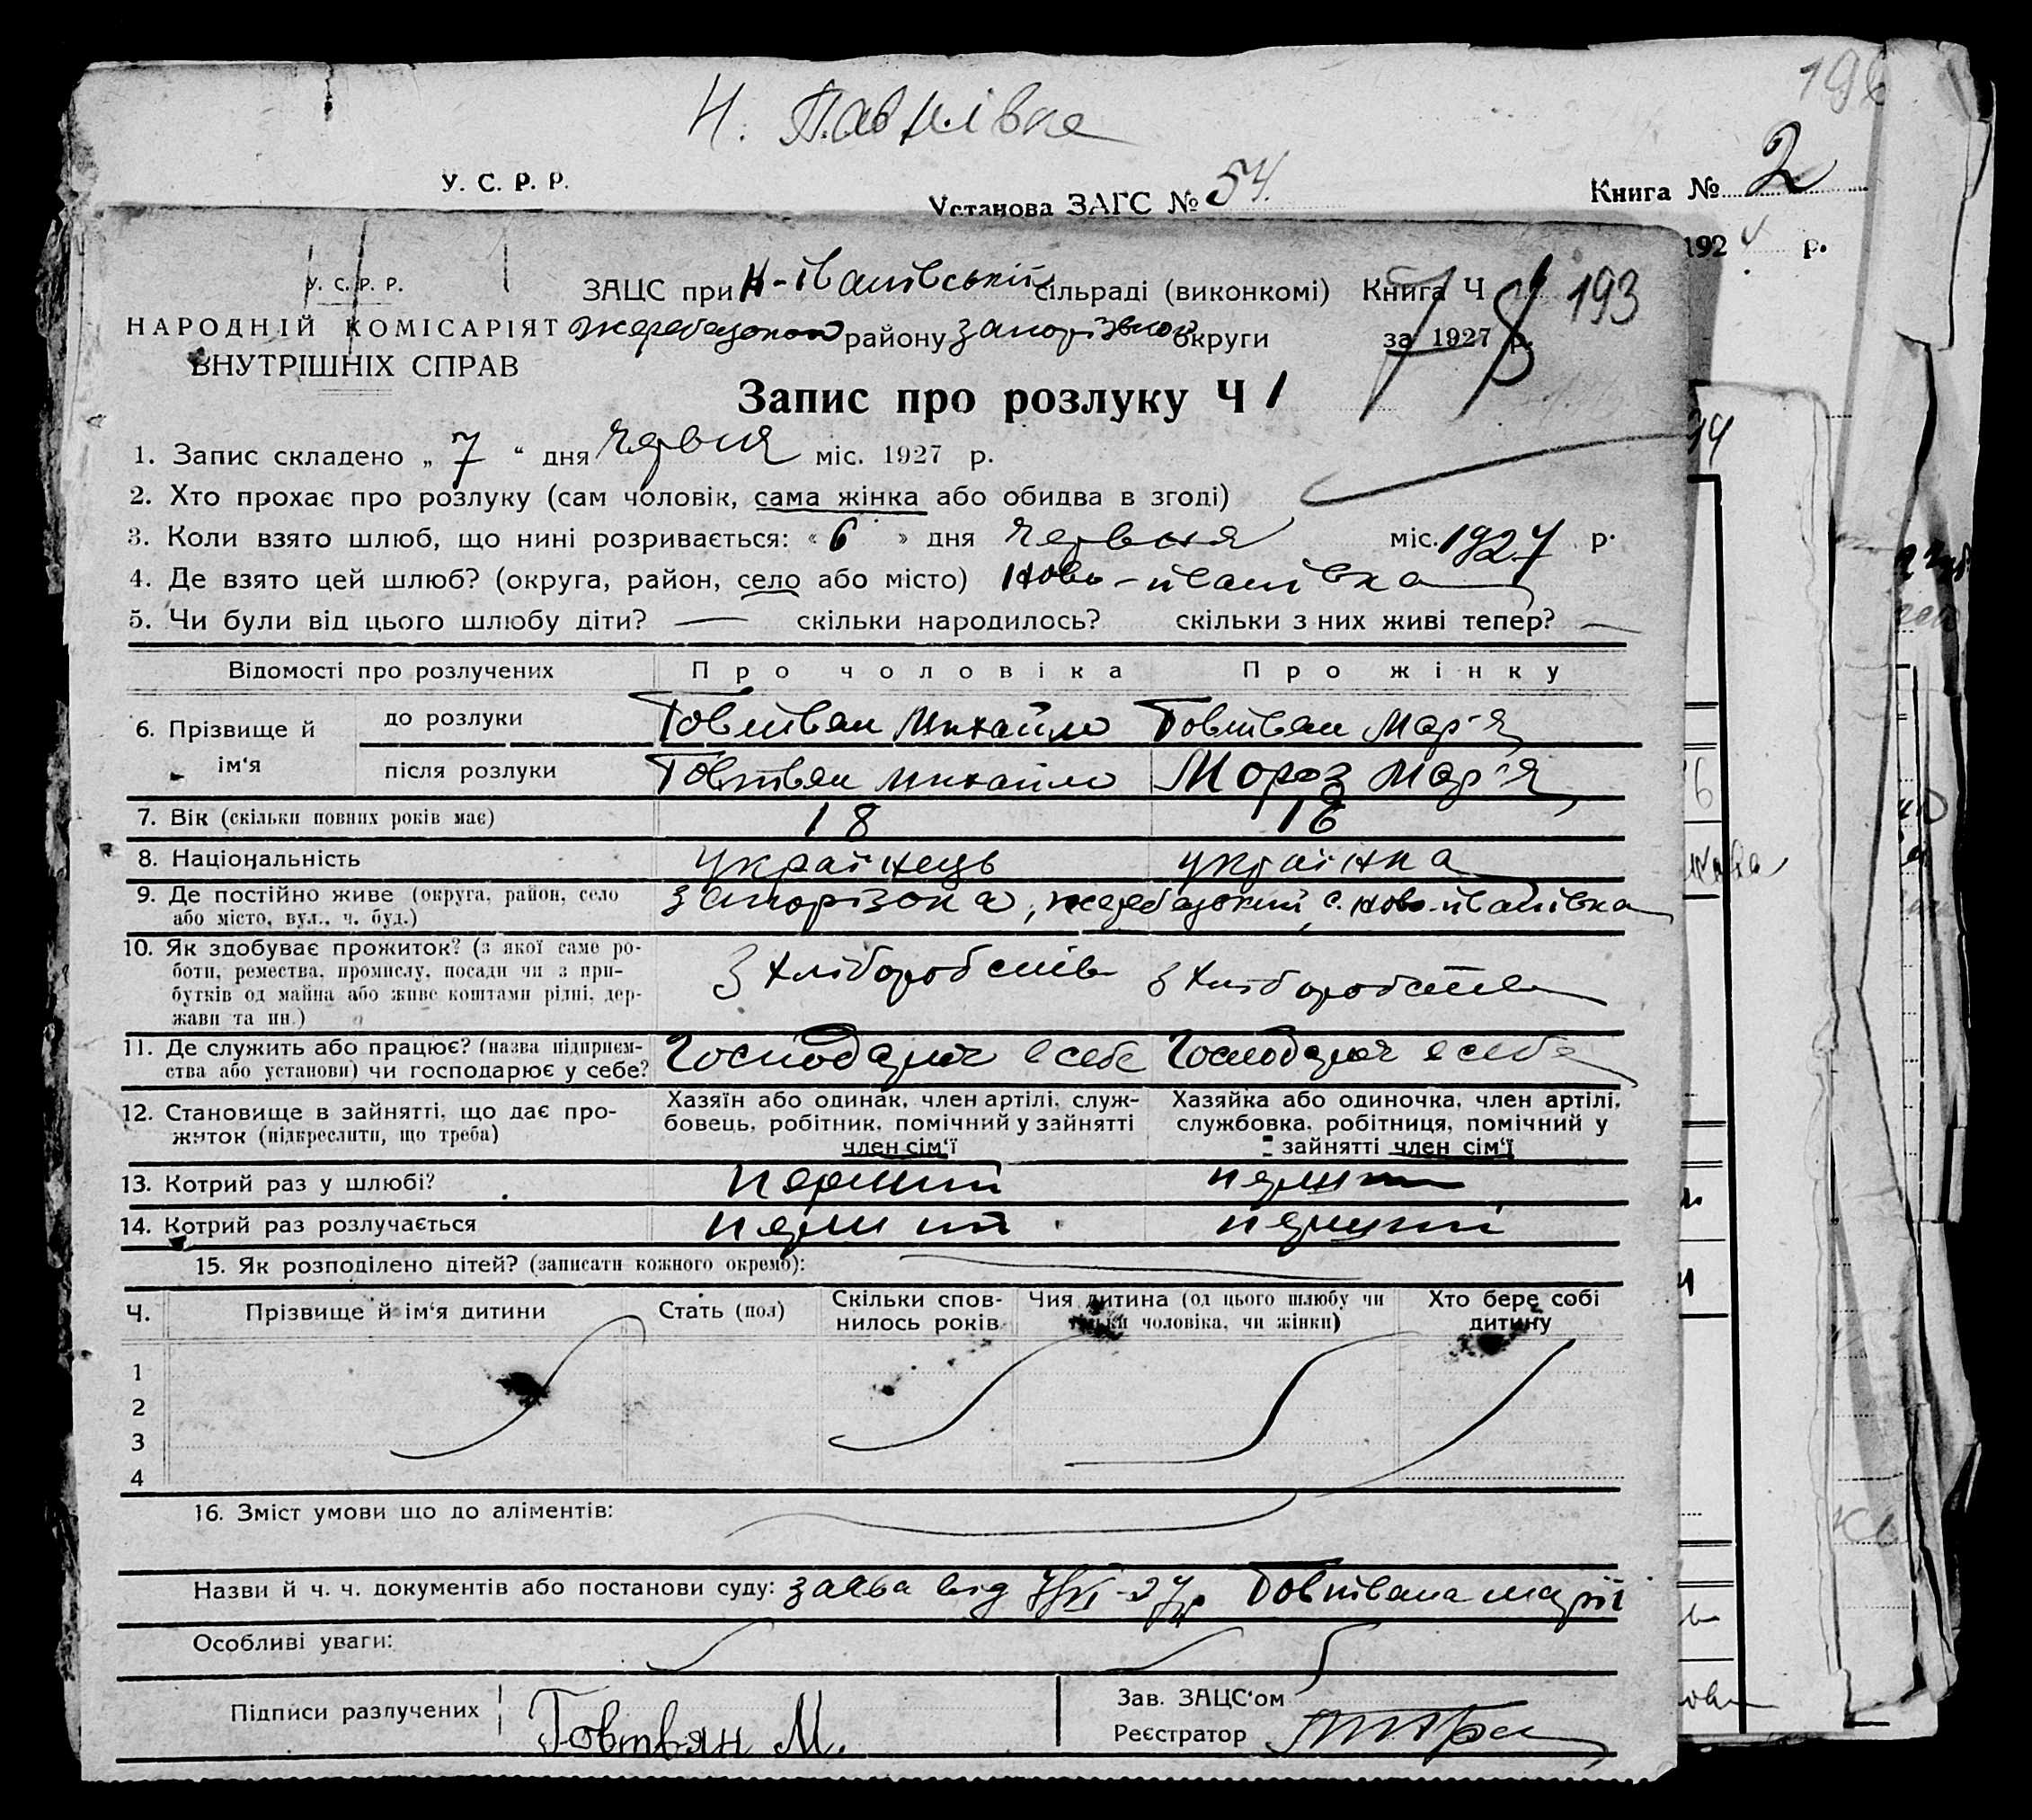 196
Н. Павлівка
У. С. Р. Р.
Установа ЗАГС № 54.
Книга № 2
192 4 р.
У. С. Р. Р.
НАРОДНІЙ КОМІСАРІЯТ
ВНУТРІШНІХ СПРАВ
ЗАЦС при Н-Іванівській сільраді (виконкомі) Книга Ч 1 193
Жеребецького району Запорізької округи за 1927 р.
Запис про розлуку Ч 1
1. Запис складено „ 7 “ дня червня міс. 1927 р.
2. Хто прохає про розлуку (сам чоловік, сама жінка або обидва в згоді)
3. Коли взято шлюб, що нині розривається: « 6 » дня червня міс. 1927 р.
4. Де взято цей шлюб? (округа, район, село або місто) Ново-Іванівка
5. Чи були від цього шлюбу діти? — скільки народилось? скільки з них живі тепер? —
Відомості про розлучених Про чоловіка Про жінку
6. Прізвище й ім‘я до розлуки Товтвян Михайло Товтвян Мар'я
після розлуки Товтвян Михайло Мороз Мар'я
7. Вік (скільки повних років має) 18 18
8. Національність українець українка
9. Де постійно живе (округа, район, село
або місто, вул., ч. буд.) Запорізька, Жеребецький, с. Ново-Іванівка
10. Як здобуває прожиток? (з якої саме ро-
боти, ремества, промислу, посади чи з при-
бутків од майна або живе коштами рідні, дер-
жави та ин.) З хліборобств З хліборобства
11. Де служить або працює? (назва підприєм-
ства або установи) чи господарює у себе? Господарює в себе Господарює в себе
12. Становище в зайнятті, що дає про-
житок (підкреслити, що треба)
Хазяїн або одинак, член артілі, служ-
бовець, робітник, помічний у зайнятті
член сім‘ї
Хазяйка або одиночка, член артілі,
службовка, робітниця, помічний у
зайнятті член сім‘ї
13. Котрий раз у шлюбі? перший перший
14. Котрий раз розлучається перший перший
15. Як розподілено дітей? (записати кожного окремо):
Ч. Прізвище й ім‘я дитини Стать (пол) Скільки спов-
нилось років Чия дитина (од цього шлюбу чи
тільки чоловіка, чи жінки) Хто бере собі
дитину
1
2
3
4
16. Зміст умови що до аліментів:
Назви й ч. ч. документів або постанови суду: заява від 7/VI-27р Товтвяна Марії
Особливі уваги:
Підписи разлучених Товтвян М.
Зав. ЗАЦС‘ом
Реєстратор